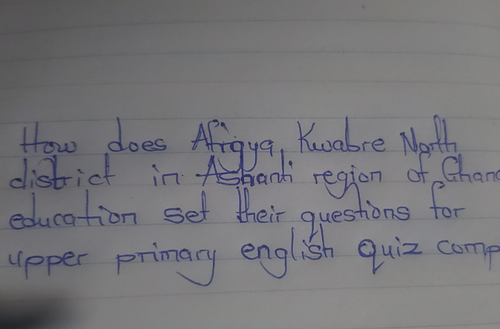 How does Afigya Kwabre North
district in Ashanti region of Ghana
education set their questions for
upper primary english quiz comp